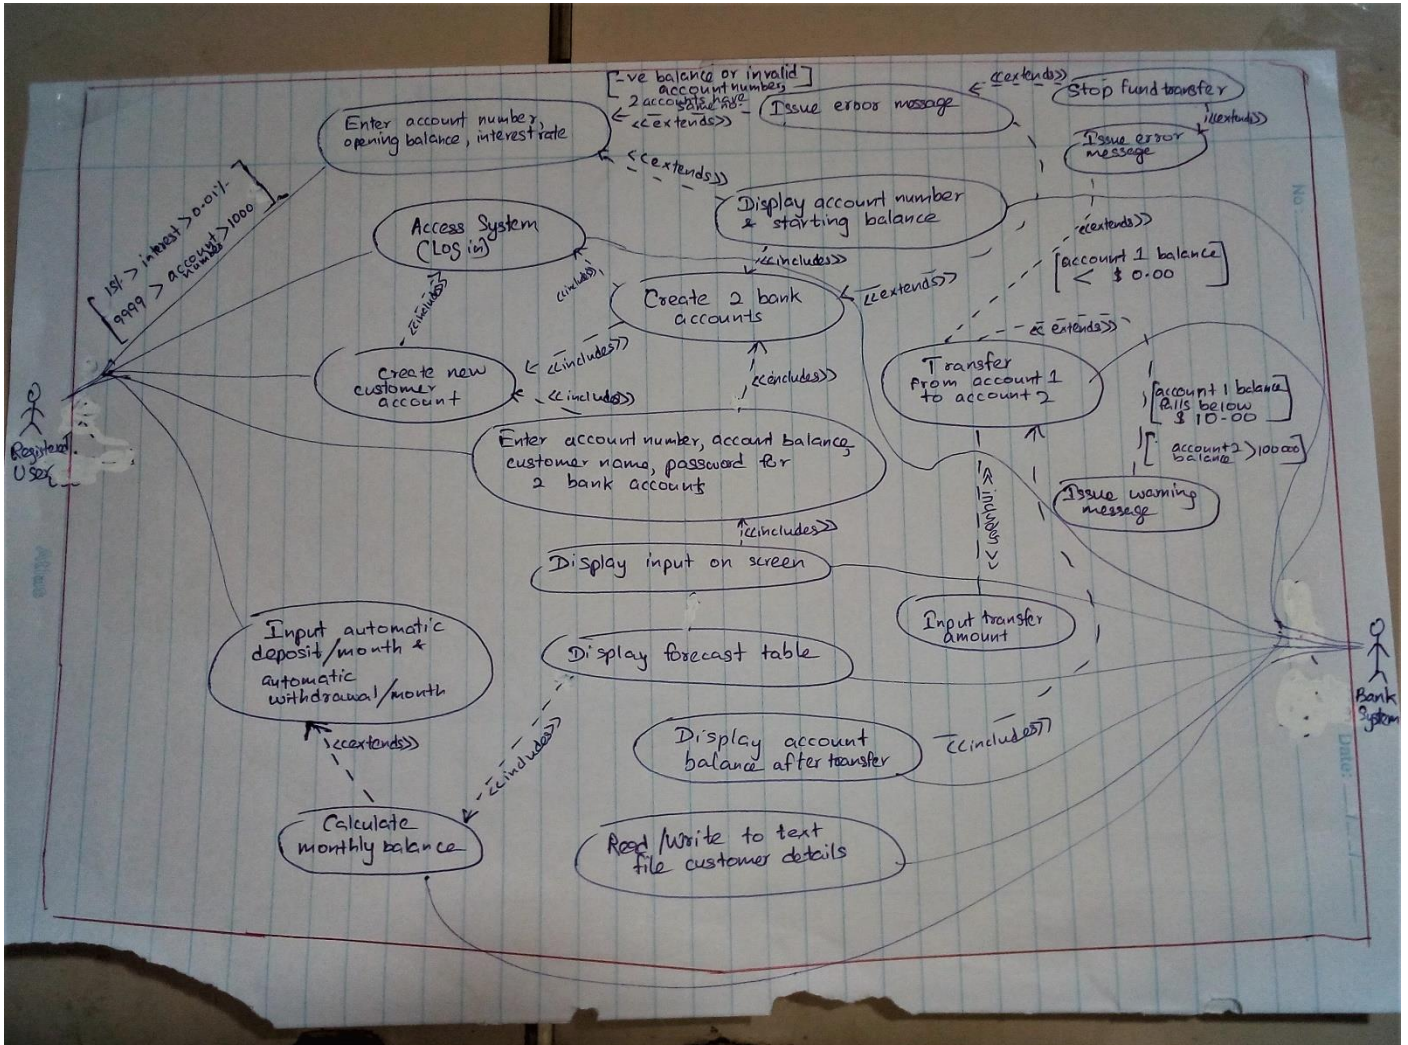 [-ve balance or invalid
account number,
2 accounts have
same no.]
<<extends>>
Issue error message
<<extends>>
Stop fund transfer
<<extends>>
Issue error
message
Enter account number,
opening balance, interest rate
<<extends>>
Display account number
& starting balance
<<extends>>
[account 1 balance
< $ 0.00]
No:
[15% > interest > 0.01%
9999 > account > 1000]
number
Access System
(Log in)
<<includes>>
<<includes>>
<<includes>>
Create 2 bank
accounts
<<extends>>
<<extends>>
Create new
customer
account
<<includes>>
<<includes>>
<<includes>>
Transfer
from account 1
to account 2
[account 1 balance
falls below
$ 10.00]
[account 2 > 100000]
balance
Registered
User
Enter account number, account balance,
customer name, password for
2 bank accounts
<<includes>>
Issue warning
message
<<includes>>
Display input on screen
Input transfer
amount
Input automatic
deposit/month &
automatic
withdrawal/month
Display forecast table
Bank
System
<<extends>>
<<includes>>
Display account
balance after transfer
<<includes>>
Date:
Calculate
monthly balance
Read/Write to text
file customer details